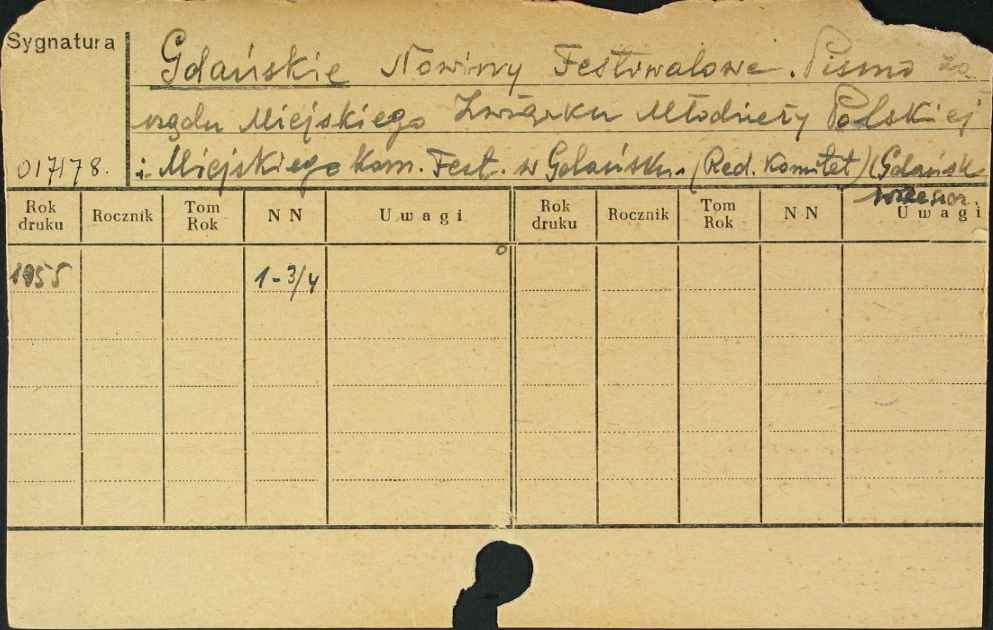 Sygnatura
Gdańskie Nowiny Festiwalowe. Pismo za
rządu Miejskiego Związku Młodzieży Polskiej
017178. i Miejskiego Kom. Fest. w Gdańsku. (Red. Komitet) (Gdańsk
Rok druku Rocznik Tom Rok NN Uwagi Rok druku Rocznik Tom Rok NN Uwagi
1955 1-3/4